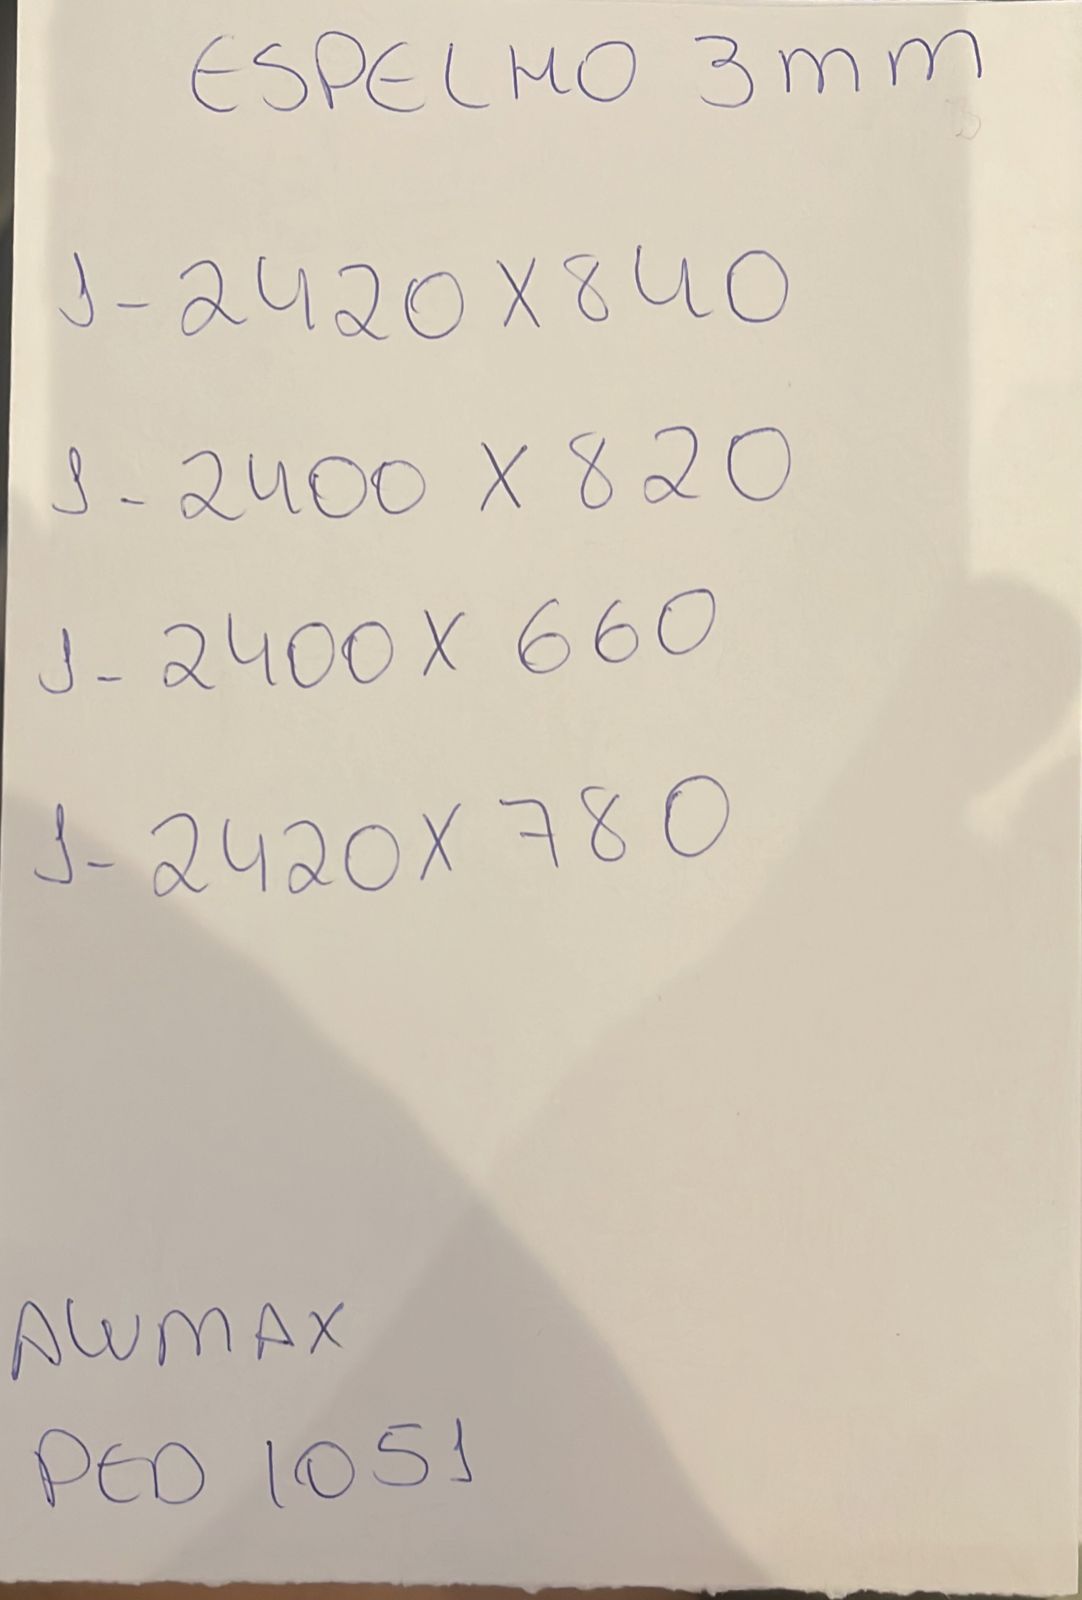 ESPELHO 3mm
1-2420X840
1-2400 X 820
1-2400X 660
1-2420X 780
ALUMAX
PED 1051